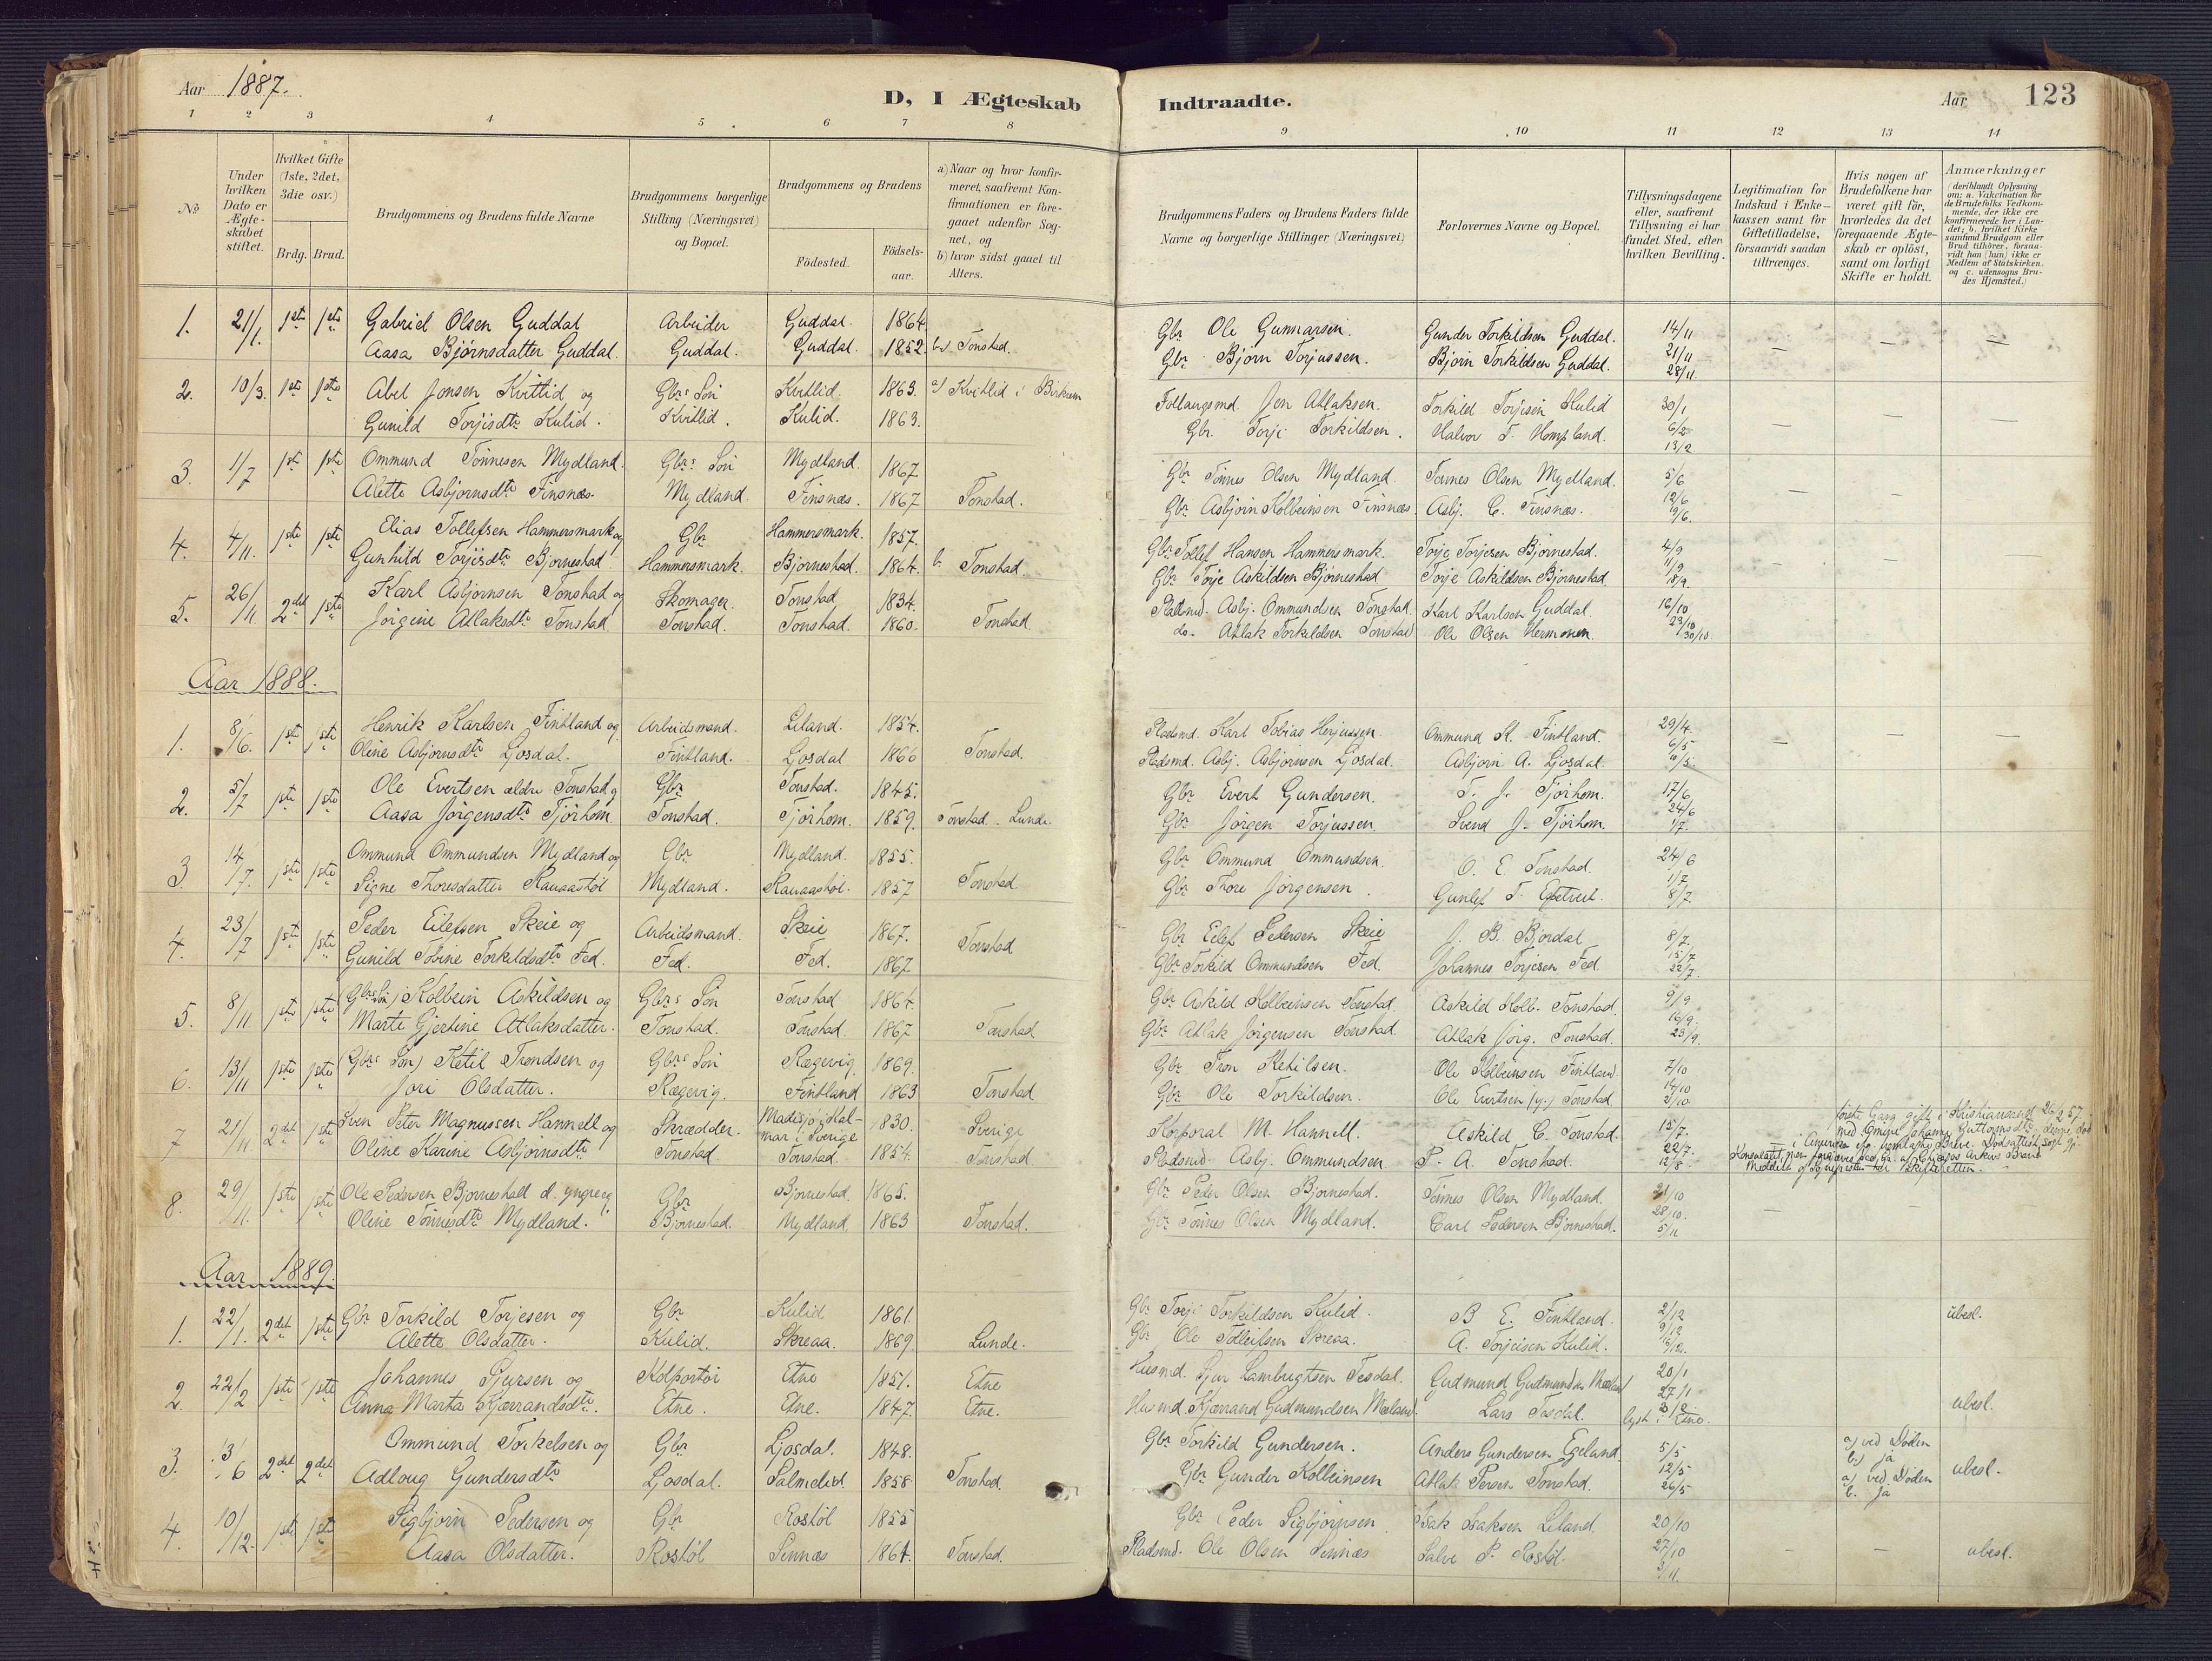 Aar 1887.
D, I Ægteskab
Indtraadte.
Aar
123
1 2 3 4 5 6 7 8
9 10 11 12 13 14
№
Under hvilken Dato er Ægteskabet stiftet.
Hvilket Gifte (1ste, 2det, 3die osv.)
Brdg. Brud.
Brudgommens og Brudens fulde Navne
Brudgommens borgerlige Stilling (Næringsvei) og Bopæl.
Brudgommens og Brudens
Födested.
Födsels-aar.
a) Naar og hvor konfirmeret, saafremt Konfirmationen er foregaaet udenfor Sognet, og
b) hvor sidst gaaet til Alters.
Brudgommens Faders og Brudens Faders fulde Navne og borgerlige Stillinger (Næringsvei)
Forlovernes Navne og Bopæl.
Tillysningsdagene eller, saafremt Tillysning ei har fundet Sted, efter hvilken Bevilling.
Legitimation for Indskud i Enkekassen samt for Giftetilladelse, forsaavidt saadan tiltrænges.
Hvis nogen af Brudefolkene har været gift før, hvorledes da det foregaaende Ægteskab er opløst, samt om lovligt Skifte er holdt.
Anmærkninger
(deriblandt Oplysning om: a. Vakcination for de Brudefolks Vedkommende, der ikke ere konfirmerede her i Landet; b. hvilket Kirkesamfund Brudgom eller Brud tilhører, forsaavidt han (hun) ikke er Medlem af Statskirken, og c. udensogns Brudes Hjemsted.)
1. 21/1. 1ste 1ste Gabriel Olsen Guddal Arbeider Guddal. 1864 Gbr Ole Gunnarsen. Gunder Torkildsen Guddal. 14/11
Aasa Bjørnsdatter Guddal. Guddal. Guddal. 1852. b) Tonstad. Gbr Bjørn Torjussen. Bjørn Torkildsen Guddal. 21/11 28/11.
2. 10/3. 1ste 1ste Abel Jonsen Kvitlid og Gbrs Søn Kvitlid 1863. a) Kvitlid i Birkrem Jon Atlaksen. Torkild Torjesen Kulid 30/1
Gunild Torjisdtr Kulid. Kvitlid. Kulid. 1863. Gbr. Torje Torkildsen. Halvor T. Hompland. 6/2 13/2
3. 1/7 1ste 1ste Ommund Tønnesen Mydland. Gbrs Søn Mydland 1867 Gbr Tønnes Olsen Mydland Tønnes Olsen Mydland. 5/6
Alette Asbjørnsdtr Finsnæs. Mydland. Finsnæs. 1867 Tonstad. Gbr Asbjørn Kolbeinsen Finsnæs. Asbj. C. Finsnæs. 12/6 19/6.
4. 4/11. 1ste 1ste Elias Tollefsen Hammersmark og Gbr Hammersmark. 1857. Gbr Tollef Hansen Hammersmark. Torje Torjesen Bjørnestad. 4/9
Gunhild Torjisdtr Bjørnestad Hammersmark. Bjørnestad. 1864. b. Tonstad. Gbr Torje Askildsen Bjørnestad Torje Askildsen Bjørnestad 11/9 18/9.
5. 26/11. 2det 1ste Karl Asbjørnsen Tonstad og Skomager. Tonstad 1834. Asbj. Ommundsen Tonstad. Karl Karlsen Guddal. 16/10
Jørgine Atlaksdtr Tonstad Tonstad. Tonstad. 1860. Tonstad. do. Atlak Torkildsen Tonstad Ole Olsen Hermonen. 23/10 30/10
Aar 1888.
1. 8/6. 1ste 1ste Henrik Karlsen Fintland og Arbeidsmand. Liland. 1854. Pladsmd. Karl Tobias Herjussen Ommund K. Fintland. 29/4.
Oline Asbjørnsdtr Ljosdal. Fintland. Ljosdal 1866 Tonstad. Pladsmd. Asbj. Asbjørnsen Ljosdal. Asbjørn A. Ljosdal 6/5
2. 5/7 1ste 1ste Ole Evertsen ældre Tonstad og Gbr Tonstad. 1845. Gbr Evert Gundersen. T. J. Tjørhom. 17/6
Aasa Jørgensdtr Tjørhom. Tonstad. Tjørhom. 1859. Tonstad. Lunde. Gbr Jørgen Torjussen. Svend J. Tjørhom. 24/6 1/7.
3 14/7. 1ste 1ste Ommund Ommundsen Mydland og Gbr Mydland. 1855. Gbr Ommund Ommundsen. O. E. Tonstad. 24/6
Signe Thoresdatter Kauaastøl Mydland. Kauaastøl. 1857 Tonstad. Gbr Thore Jørgensen. Gunlef T. 1/7 8/7.
4. 23/7 1ste 1ste Peder Eilefsen Skeie og Arbeidsmand. Skeie 1867. Tonstad Gbr Eilef Pedersen Skeie J. B. Bjordal 8/7.
Gunild Tobine Torkildsdtr Fed. Fed. Fed. 1867. Gbr Torkild Ommundsen Fed. Johannes Torjesen Fed. 15/7 22/7.
5. 8/11 1ste 1ste (Gbrs Søn) Kolbein Askildsen og Gbrs Søn Tonstad 1864. Gbr Askild Kolbeinsen Tonstad. Askild Kolb. Tonstad. 9/9
Marte Gjertine Atlaksdatter. Tonstad. Tonstad. 1867 Tonstad Gbr Atlak Jørgensen Tonstad. Atlak Jørg. Tonstad. 16/9. 23/9.
6. 13/11 1ste 1ste (Gbrs Søn) Ketil Trondsen og Gbrs Søn Rægevig. 1869. Gbr Tron Ketilsen. Ole Kolbeinsen Fintland 7/10
Jori Olsdatter. Rægevig. Fintland 1863 Tonstad Gbr Ole Torkildsen. Ole Evertsen (yg.) Tonstad 14/10
7 21/11. 2det 1ste Sven Peter Magnussen Hannell og Skrædder. Kalmar i Sverige 1830. Sverige Korporal M. Hannell. Askild C. Tonstad. 15/7.
Oline Karine Asbjørnsdtr Tonstad Tonstad. 1854. Tonstad. Pladsmd. Asbj. Ommundsen P. A. Tonstad. 22/7. 12/8
første Gang gift i Kristiansand 26/2 57.
8. 29/11. 1ste 1ste Ole Pedersen Bjørnestad d. yngre og Gbr Bjørnestad. 1865. Gbr Peder Olsen Bjørnestad. Tønnes Olsen Mydland. 21/10
Oline Tønnesdtr Mydland. Bjørnestad. Mydland. 1863 Tonstad. Gbr Tønnes Olsen Mydland. Carl Pedersen Bjørnestad. 28/10. 5/11
Aar 1889.
1. 22/1. 2det 1ste Gbr Torkild Torjesen og Gbr Kulid 1861. Gbr Torje Torkildsen Kulid. B E. Fintland. 2/12 ubesl.
Alette Olsdatter. Kulid. Skreaa. 1869. Lunde. Gbr Ole Tolleifsen Skreaa. A. Torjeisen Kulid. 9/12 16/12.
2. 22/2 1ste 1ste Johannes Sjursen og Kolportør Etne 1851. Etne Husmd. Sjur Lambrigtsen Tesdal. Gudmund Gudmundsen 20/1
Anna Marta Kjærrandsdtr. Etne. Etne. 1847. Etne. Husmd. Kjærrand Gudmundsen Lars Tesdal. 27/1 3/2. lyst i Etne. ubesl.
3. 13/6 2det 2det Ommund Torkelsen og Gbr Ljosdal. 1848. Gbr Torkild Gundersen. Anders Gundersen Egeland. 5/5 a) ved Døden b.) ja
Adloug Gundersdtr Ljosdal. Salmelid. 1858 Tonstad. Gbr Gunder Kolbeinsen Atlak Persen Tonstad. 12/5 26/5 a) ved Døden b. Ja ubesl.
4. 10/12. 1ste 1ste Sigbjørn Pedersen og Gbr Rostøl 1855 Gbr Peder Sigbjørnsen. Isak Isaksen Liland. 20/10
Aasa Olsdatter. Rostøl Sinnæs 1864. Tonstad. Pladsmd. Ole Olsen Sinnæs Salve P. Rostøl. 27/10 3/11. ubesl.